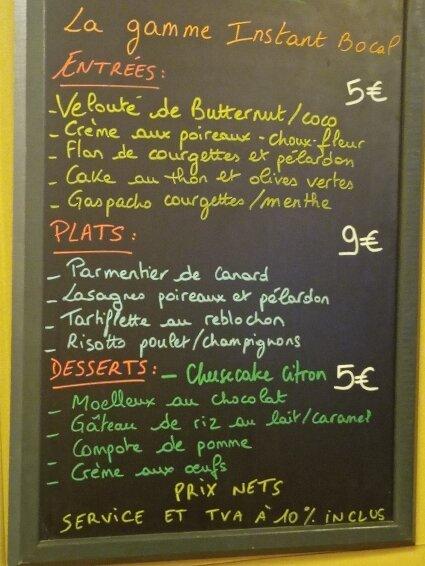 La gamme Instant Bocal
ENTRÉES: 5€
- Velouté de Butternut/coco
- Crème aux poireaux-choux-fleur
- Flan de courgettes et pélardon
- Cake au thon et olives vertes
- Gaspacho courgettes/menthe
PLATS: 9€
- Parmentier de canard
- Lasagnes poireaux et pélardon
- Tartiflette au reblochon
- Risotto poulet/champignons
DESSERTS: - Cheesecake citron 5€
- Moelleux au chocolat
- Gâteau de riz au lait/caramel
- Compote de pomme
- Crème aux œufs
PRIX NETS
SERVICE ET TVA À 10% INCLUS